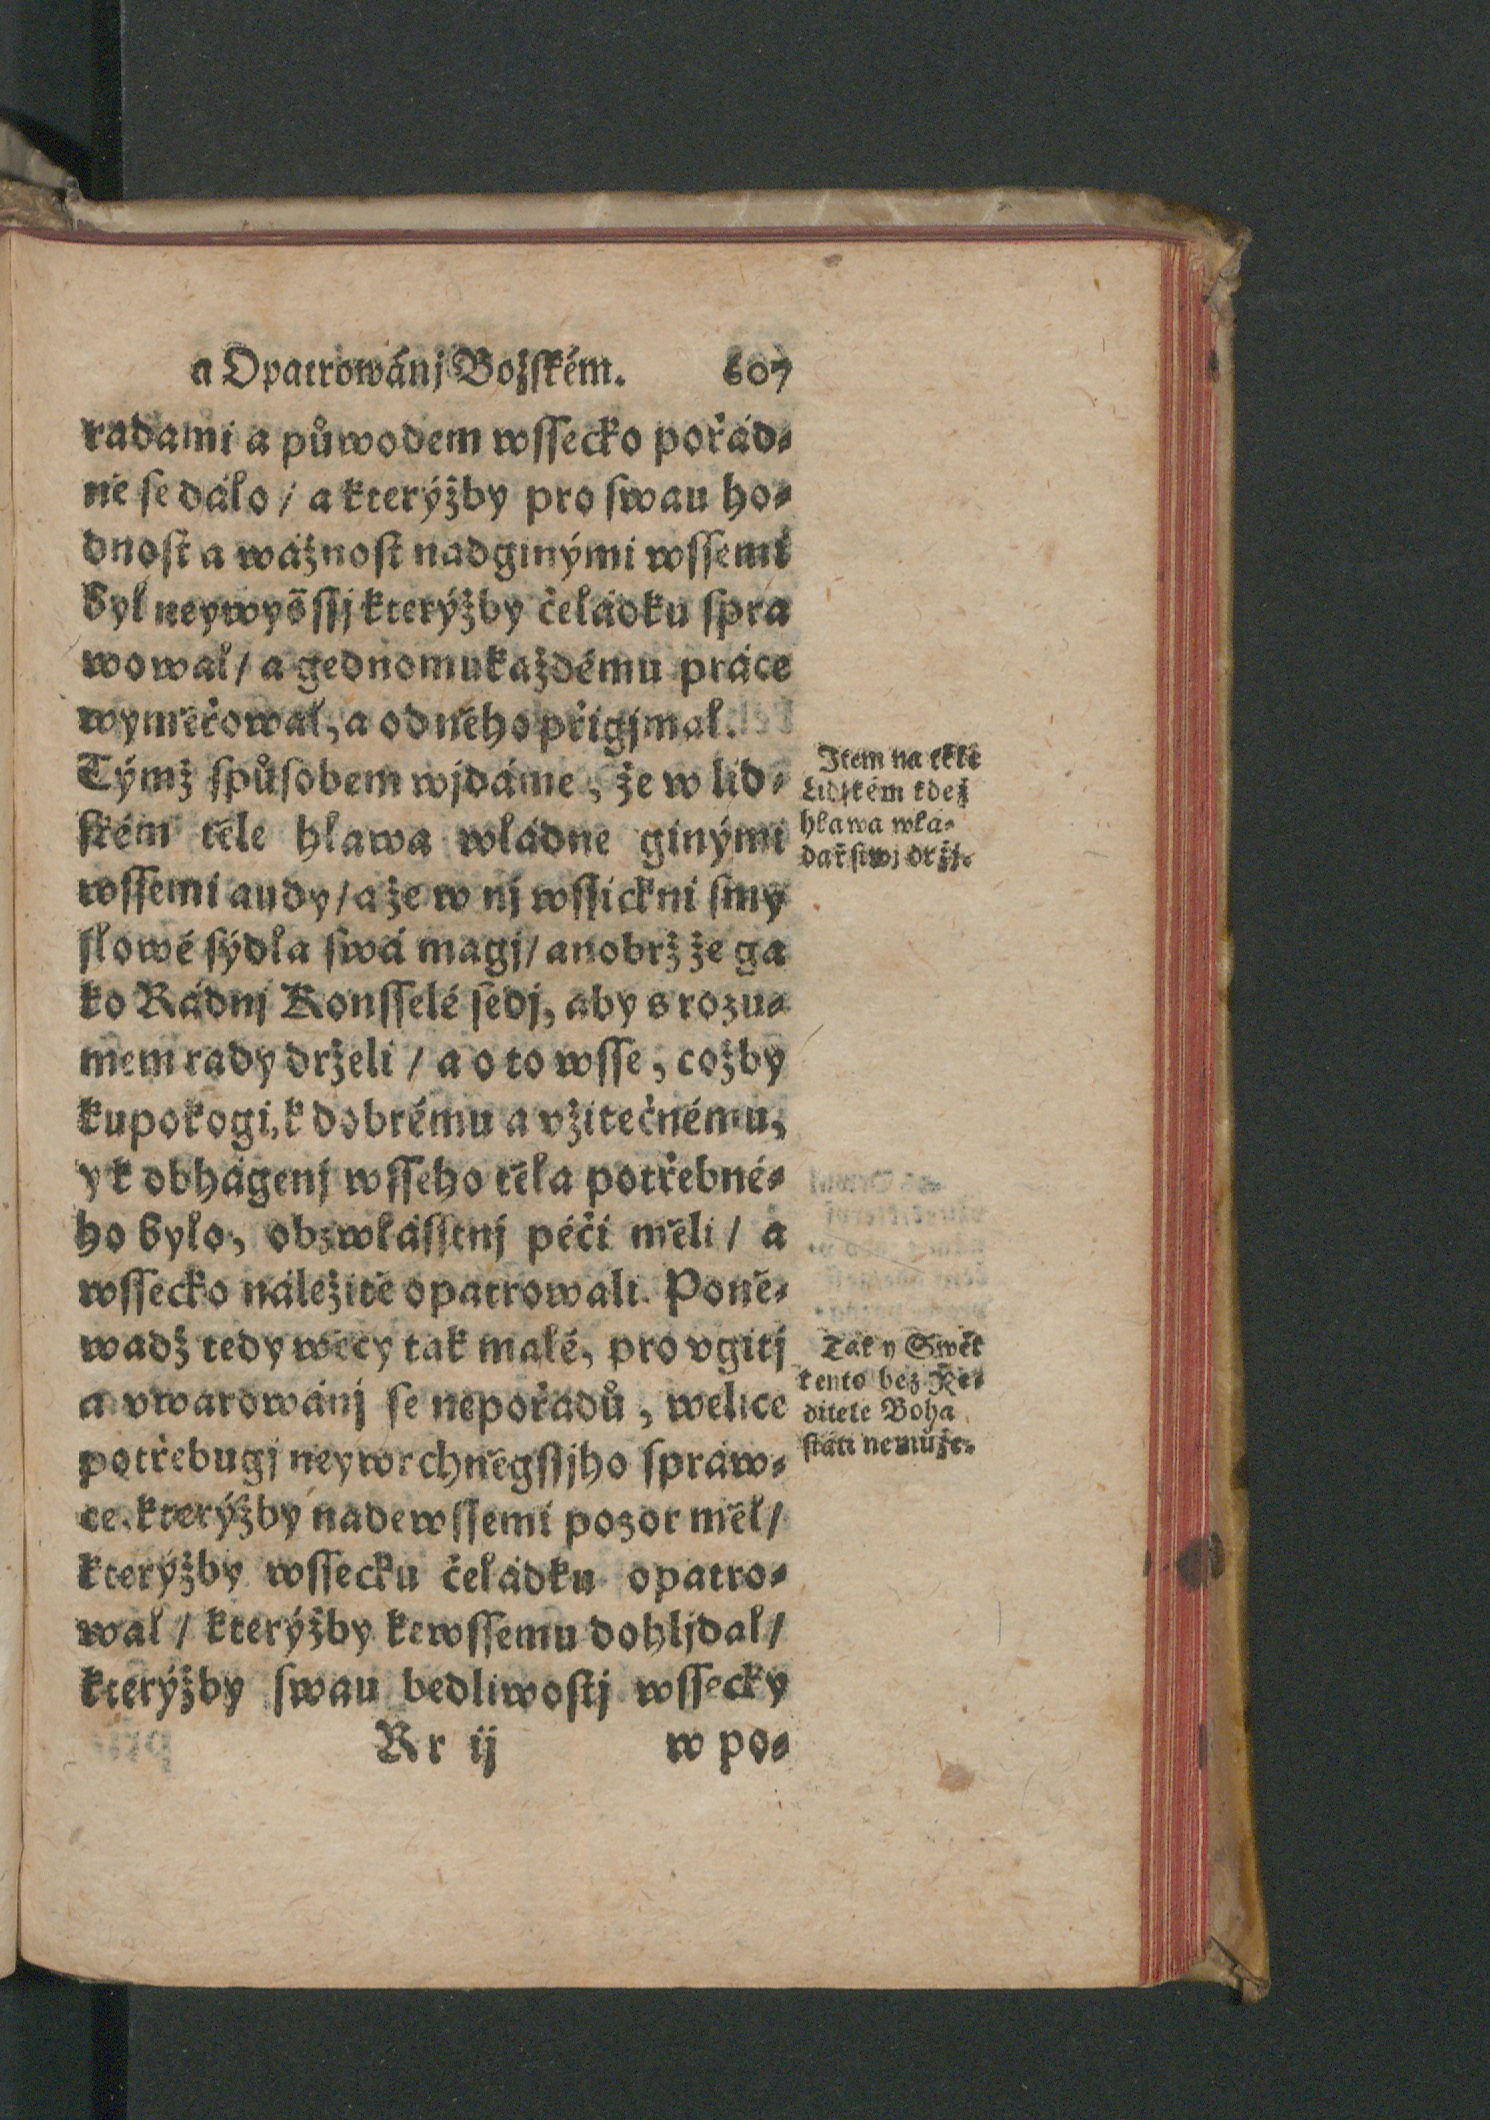 a Opatrowánj Božſkém. 607
radami a půwodem wſſecko pořád⸗
ně ſe dálo / a kterýžby pro ſwau ho⸗
dnoſt a wážnoſt nadginými wſſemi
byl neywyšſſj kterýžby čeládku ſpra
wowal / a gednomukaždému práce
wyměřowal, a od něho přigjmal.
Týmž ſpůſobem wjdáme, že w lid⸗
ſkém těle hlawa wládne ginými
wſſemi audy / a že w nj wſſickni ſmy
ſlowé ſýdla ſwá magj / anobrž že ga
ko Rádnj Konſſelé ſedj, aby s rozu⸗
mem rady drželi / a o to wſſe, cožby
kupokogi, k dobrému a vžitečnému,
y k obhágenj wſſeho těla potřebné⸗
ho bylo, obzwláſſtnj péči měli / a
wſſecko náležitě opatrowali. Poně⸗
wadž tedy wěcy tak malé, pro vgitj
a vwarowánj ſe nepořádů, welice
potřebugj neywrchněgſſjho ſpráw⸗
ce. kterýžby nadewſſemi pozor měl /
kterýžby wſſecku čeládku opatro⸗
wal / kterýžby kewſſemu dohljdal /
kterýžby ſwau bedliwoſtj wſſecky
Rr ij w po⸗
Item na těle
Lidſkém kdež
hlawa wlá⸗
dařſtwj držj.
Tak y Swět
tento bez Ře⸗
ditele Boha
ſtáti nemůže.